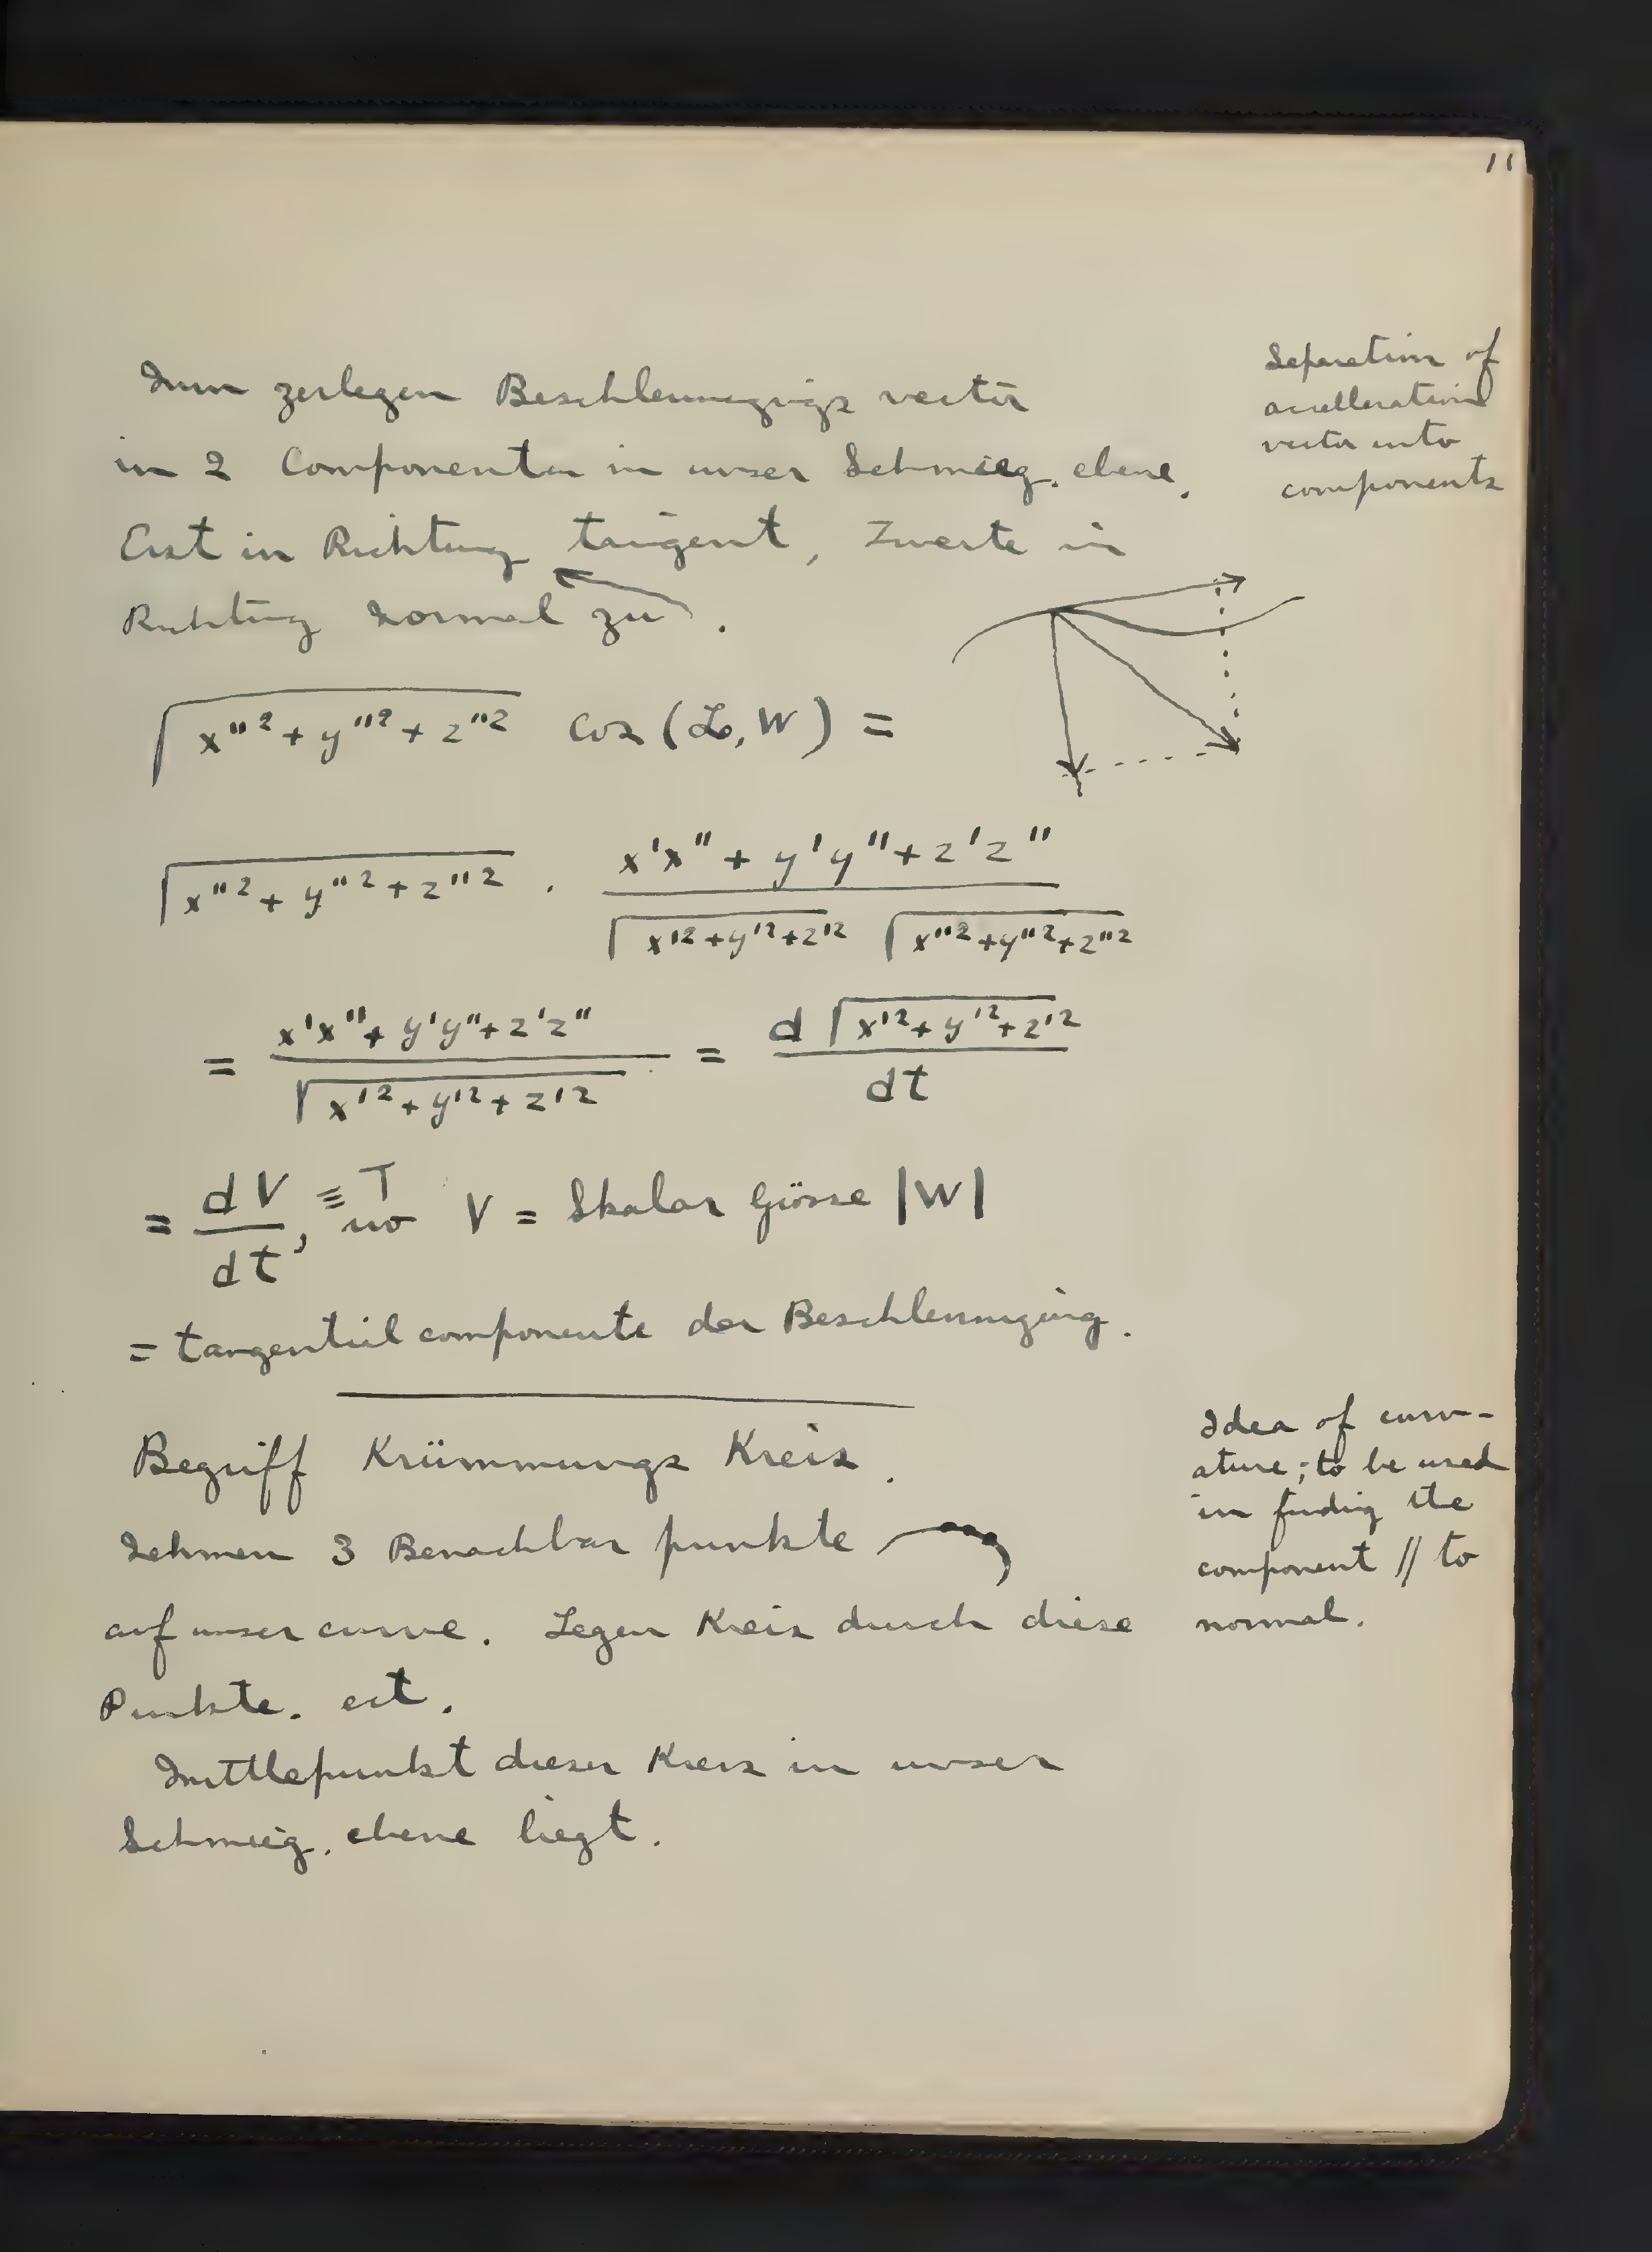 11
Nun zerlegen Beschleunigungs vector
in 2 Componenten in unser Schmieg. ebene.
Erst in Richtung tangent, Zweite in
Richtung Normal zu .
Separation of
accelleration
vector into
components
√(x''² + y''² + z''²) cos (L, W) =
√(x''² + y''² + z''²) · (x'x'' + y'y'' + z'z'') / (√(x'² + y'² + z'²) √(x''² + y''² + z''²))
= (x'x'' + y'y'' + z'z'') / √(x'² + y'² + z'²) = d √(x'² + y'² + z'²) / dt
= dV/dt, ≡ T wo V = Skalar Grösse |W|
= tangential componente der Beschleunigung.
Begriff Krümmungs Kreis.
Nehmen 3 Benachbar punkte
auf unser curve. Legen Kreis durch diese
Punkte. ect.
Mittlepunkt dieser Kreis in unser
Schmieg. ebene liegt.
Idea of curv-
ature; to be used
in finding the
component // to
normal.